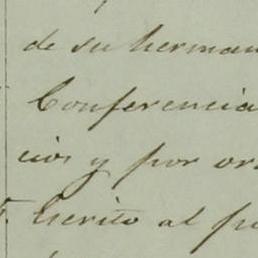 de su herman
Conferencia
cios y por or
Escrito al p